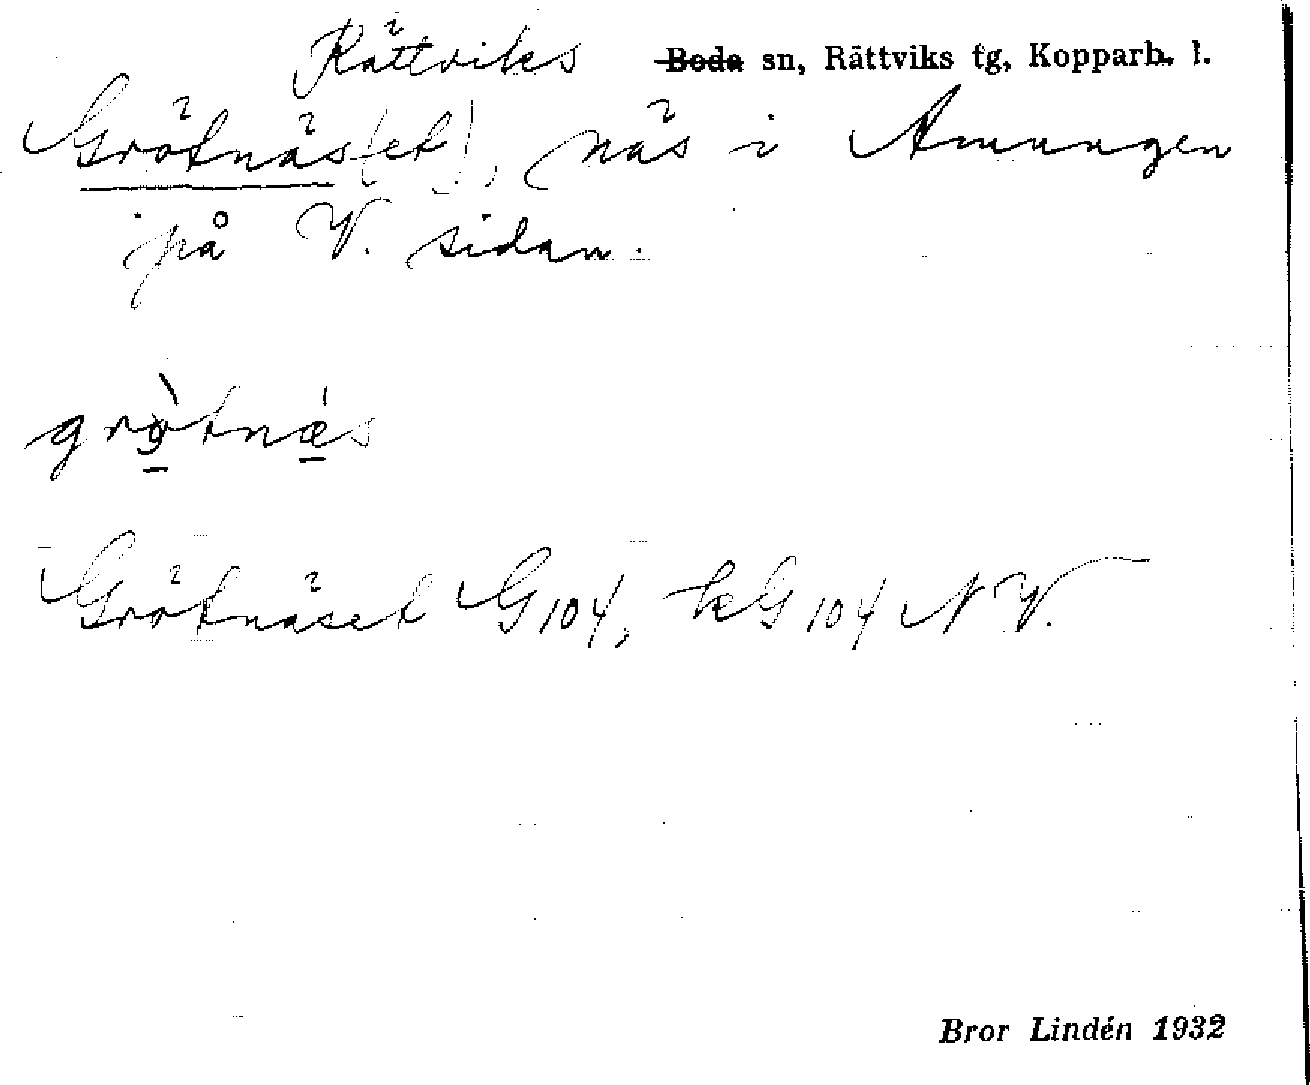 Rättviks ~~Boda~~ sn, Rättviks tg, Kopparb. l.
Grötnäs(et), näs i Amungen
på V. sidan.
grò̱tnǽ̱s
Grötnäset G104, kG104 NV.
Bror Lindén 1932